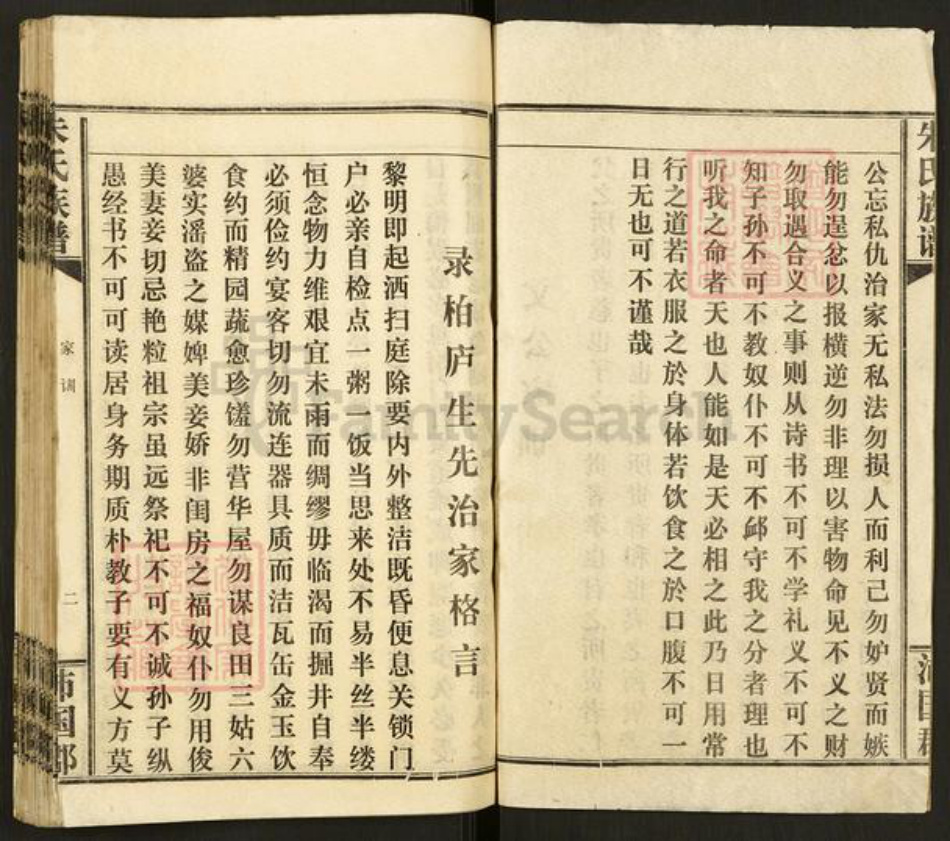 朱氏族谱
公忘私仇治家无私法勿损人而利己勿妒贤而嫉
能勿逞忿以报横逆勿非理以害物命见不义之财
勿取遇合义之事则从诗书不可不学礼义不可不
知子孙不可不教奴仆不可不邺守我之分者理也
听我之命者天也人能如是天必相之此乃日用常
行之道若衣服之於身体若饮食之於口腹不可一
日无也可不谨哉
沛国郡
录柏庐生先治家格言
黎明即起洒扫庭除要内外整洁既昏便息关锁门
户必亲自检点一粥一饭当思来处不易半丝半缕
恒念物力维艰宜未雨而绸缪毋临渴而掘井自奉
必须俭约宴客切勿流连器具质而洁瓦缶金玉饮
食约而精园蔬愈珍馐勿营华屋勿谋良田三姑六
婆实滛盗之媒婢美妾娇非闺房之福奴仆勿用俊
美妻妾切忌艳粒祖宗虽远祭祀不可不诚孙子纵
愚经书不可可读居身务期质朴教子要有义方莫
朱氏族谱
家训
二
沛国郡
FamilySearch